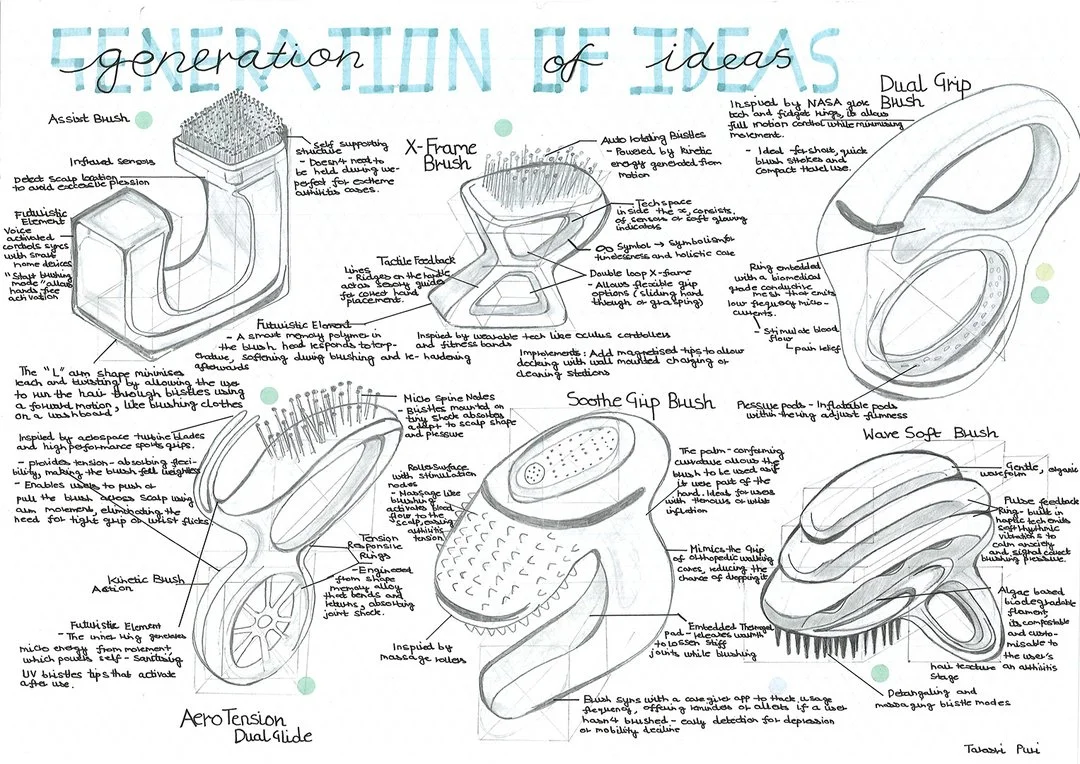 GENERATION OF IDEAS
generation of ideas
Assist Brush
Infrared sensors
Detect Scalp location
to avoid excessive pression
Futuristic
Element
Voice
activated
controls syncs
with smart
home devices
"Start brushing
mode" allows
hands-free
activation
Self supporting
structure
- Doesn't need to
be held during use-
perfect for extreme
arthritis cases.
The "L" arm shape minimises
reach and twisting by allowing the user
to run the hair through bristles using
a forward motion, like brushing clothes
on a washboard
X-Frame
Brush
Auto rotating Bristles
- Powered by kinetic
energy generated from
motion
Tech space
inside the x, consists
of sensors or soft glowing
indicators
∞ Symbol → symbolism for
timelessness and holistic care
Double loop X-frame
- Allows flexible grip
options (sliding hand
through or grasping)
Tactile Feedback
Lines
- Ridges on the handle
act as sensory guides
for correct hand
placement.
Futuristic Element
- A smart memory polymer in
the brush head responds to temp-
erature, softening during brushing and re-hardening
afterwards
Inspired by wearable tech like oculus controllers
and fitness bands
Improvements: Add magnetised tips to allow
docking with wall mounted charging or
cleaning stations
Dual Grip
Brush
Inspired by NASA glove
tech and fidget rings, it allows
full motion control while minimising
movement.
- Ideal for short, quick
brush strokes and
compact travel use.
Ring embedded
with a biomedical
grade conductive
mesh that emits
low frequency micro-
currents.
- Stimulate blood
flow
pain relief
Pressure pods - Inflatable pods
within the ring adjust firmness
Inspired by aerospace turbine blades
and high performance sports grips.
- provides tension-absorbing flexi-
bility, making the brush felt weightless
- Enables users to push or
pull the brush across scalp using
arm movement, eliminating the
need for tight grip or wrist flicks
Kinetic Brush
Action
Futuristic Element
- The inner ring generates
micro energy from movement,
which powers self-sanitising
UV bristles tips that activate
after use.
AeroTension
Dual Glide
Micro Spine Nodes
- Bristles mounted on
tiny shock absorbs
adapt to scalp shape
and pressure
Tension
Responsive
Rings
- Engineered
from shape
memory alloy
that bends and
returns, absorbing
joint shock.
Soothe Grip Brush
Roller Surface
with stimulation
nodes
- Massage like
brushing
activates blood
flow to the
scalp, easing
arthritis
tension
Inspired by
massage rollers
The palm-conforming
curvature allows the
brush to be used as if
it were part of the
hand. Ideal for users
with tremors or wrist
inflation
Mimics the Grip
of orthopedic walking
canes, reducing the
chance of dropping it
Embedded Thermogel
pad - releases warmth
to loosen stiff
joints while brushing
Brush syncs with a care giver app to track usage
frequency, offering reminders or alerts if a user
hasn't brushed - early detection for depression
or mobility decline
Wave Soft Brush
Gentle, organic
waveform
Pulse feedback
Ring - built in
haptic tech emits
soft rhythmic
vibrations to
calm anxiety
and signal correct
brushing pressure.
Algae based
biodegradable
filament,
its compostable
and custo-
misable to
the user's
hair texture an arthritis
stage
Detangaling and
massaging bristle modes
Puri